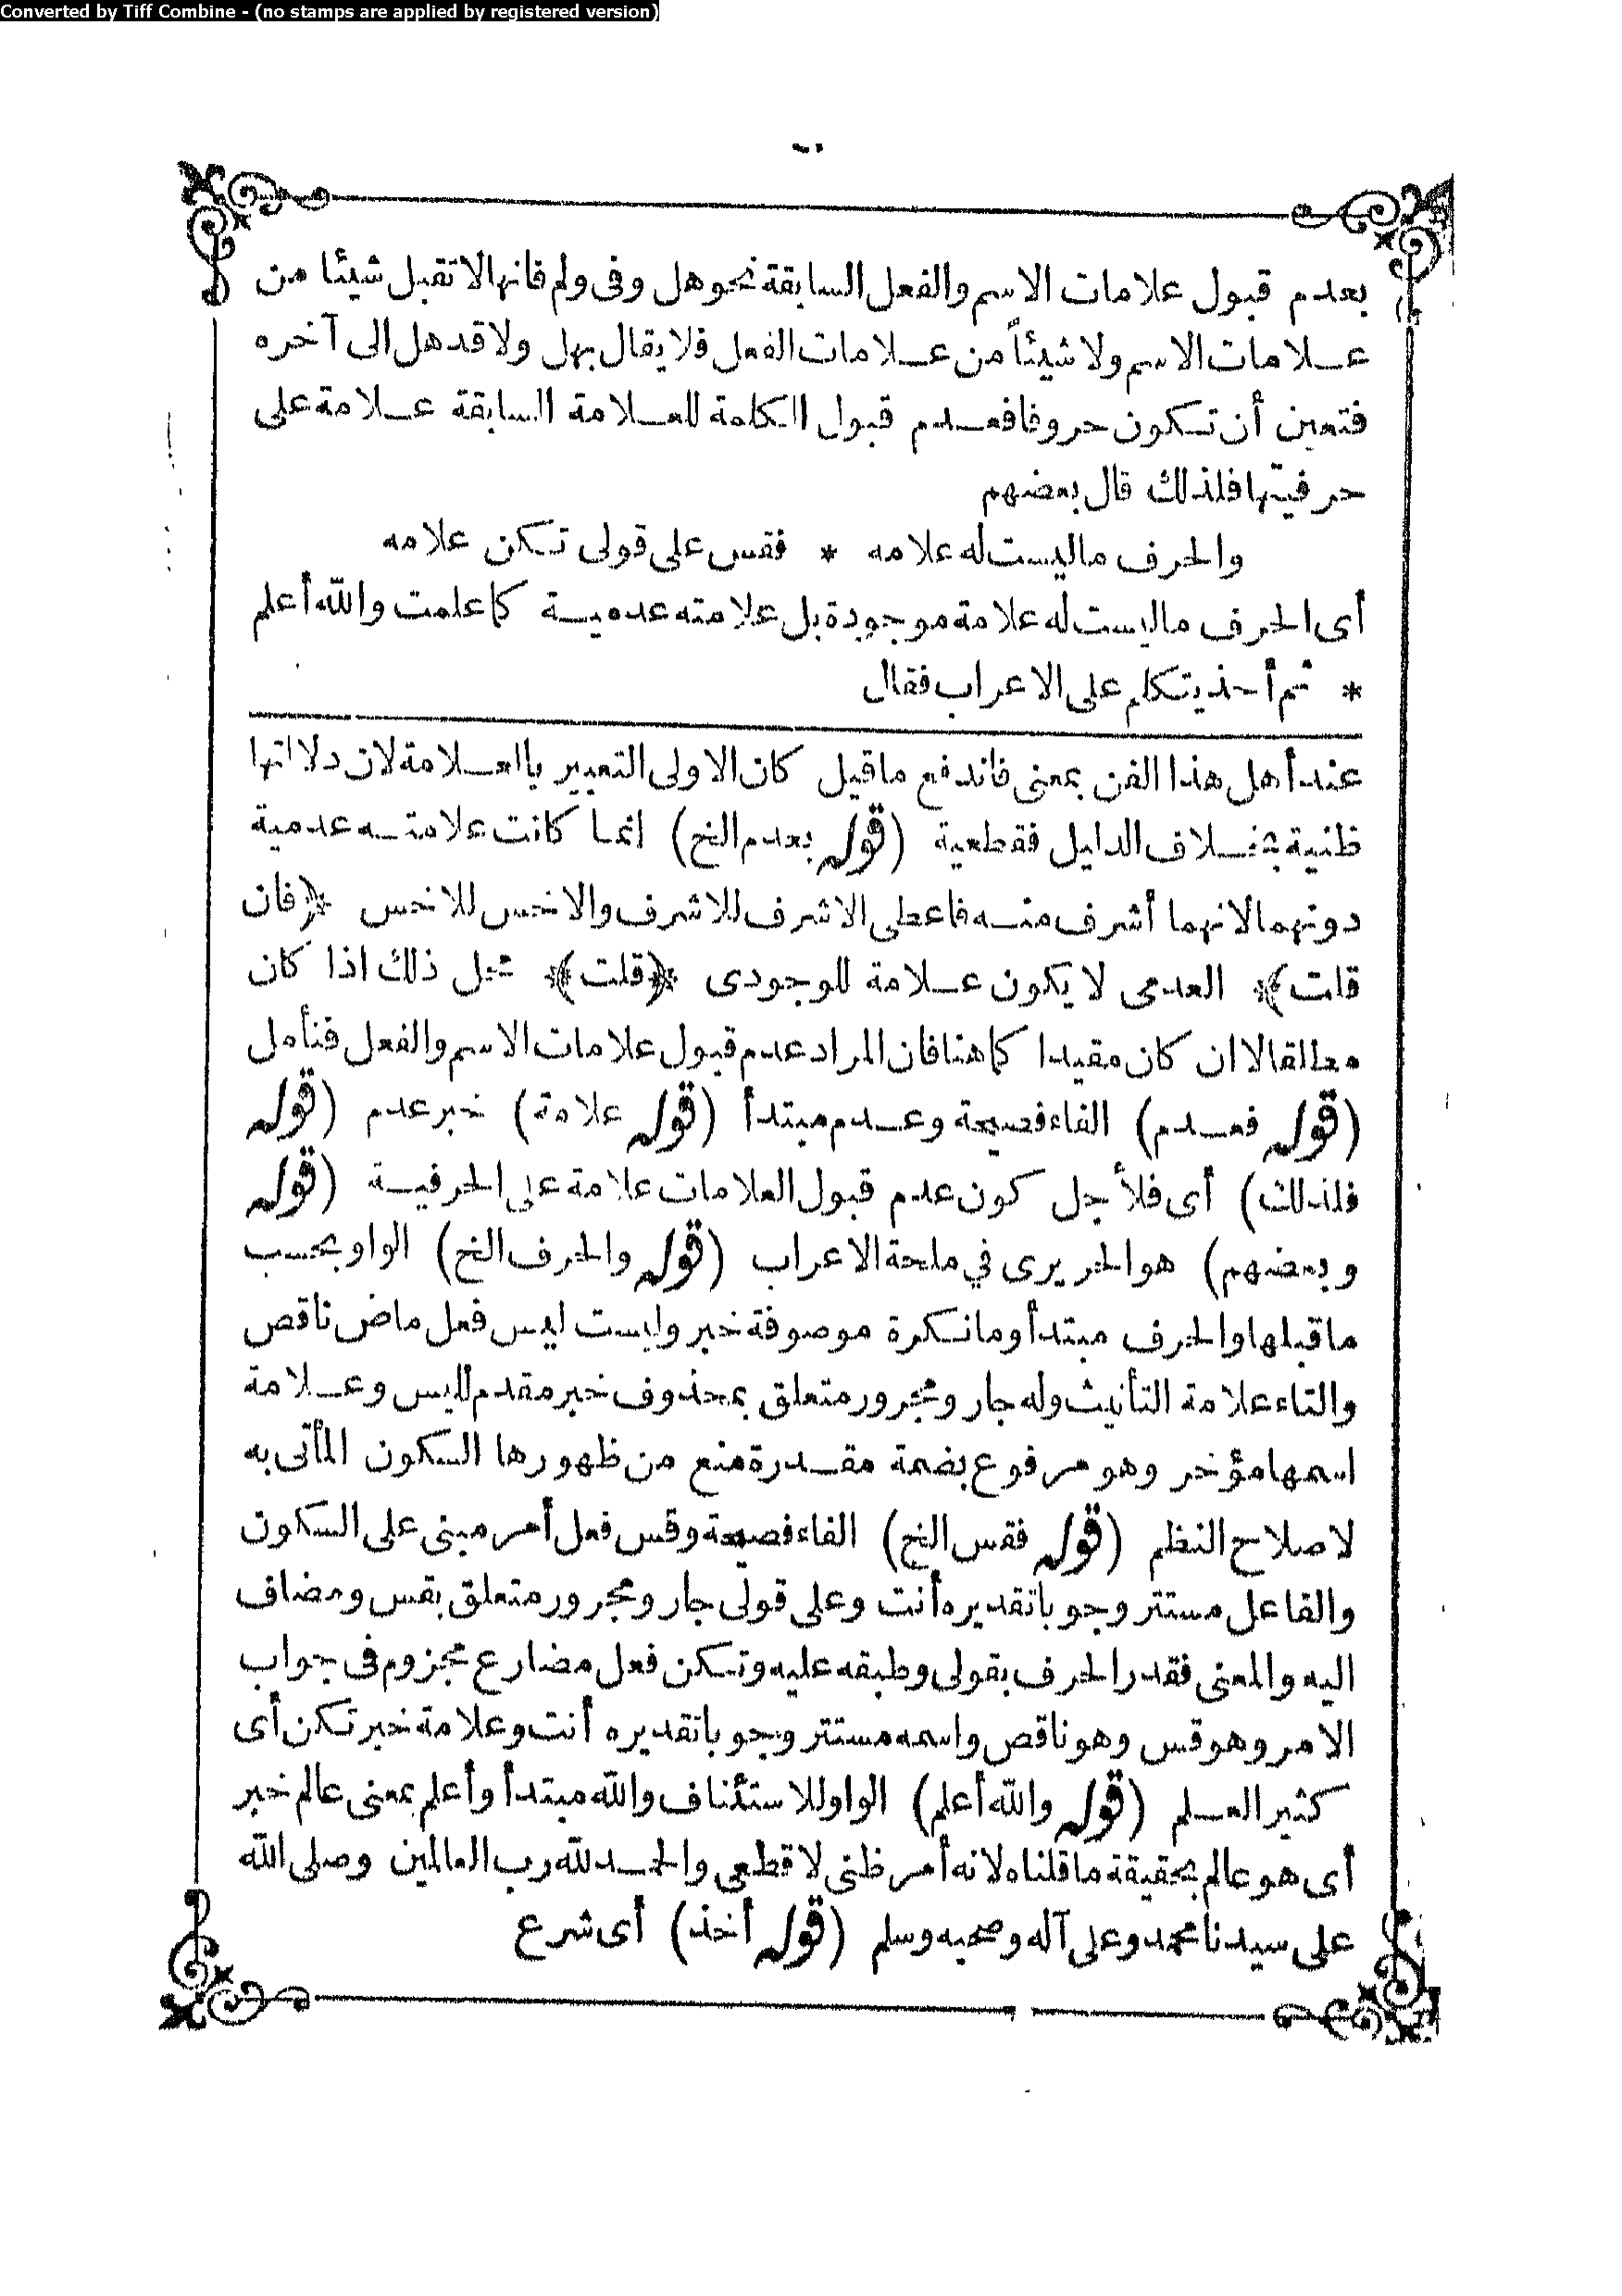 Converted by Tiff Combine - (no stamps are applied by registered version)
بعدم قبول علامات الاسم والفعل السابقة نحو هل وفى ولم فانها لا تقبل شيئا من
علامات الاسم ولا شيئاً من علامات الفعل فلا يقال بهل ولا قد هل الى آخره
فتعين أن تكون حروفا فعدم قبول الكلمة للعلامة السابقة علامة على
حرفيتها فلذلك قال بعضهم
والحرف ما ليست له علامه * فقس على قولى تكن علامه
أى الحرف ما ليست له علامة موجودة بل علامته عدمية كما علمت والله أعلم
* ثم أخذ يتكلم على الاعراب فقال
عند أهل هذا الفن بمعنى فاندفع ما قيل كان الاولى التعبير بالعلامة لان دلالتها
ظنية بخلاف الدليل فقطعية (قوله بعدم الخ) انما كانت علامته عدمية
دونهما لانهما أشرف منه فاعطى الاشرف للاشرف والاخس للاخس ﴿فان
قلت﴾ العدمى لا يكون علامة للوجودى ﴿قلت﴾ محل ذلك اذا كان
مطلقا لا ان كان مقيدا كما هنا فان المراد عدم قبول علامات الاسم والفعل فتأمل
(قوله فعدم) الفاء فصيحة وعدم مبتدأ (قوله علامة) خبر عدم (قوله
فلذلك) أى فلأجل كون عدم قبول العلامات علامة على الحرفية (قوله
وبعضهم) هو الحريرى في ملحة الاعراب (قوله والحرف الخ) الواو بحسب
ما قبلها والحرف مبتدأ وما نكرة موصوفة خبر وليست ليس فعل ماض ناقص
والتاء علامة التأنيث وله جار ومجرور متعلق بمحذوف خبر مقدم لليس وعلامة
اسمها مؤخر وهو مرفوع بضمة مقدرة منع من ظهورها السكون المأتى به
لاصلاح النظم (قوله فقس الخ) الفاء فصيحة وقس فعل أمر مبنى على السكون
والفاعل مستتر وجوبا تقديره أنت وعلى قولى جار ومجرور متعلق بقس ومضاف
اليه والمعنى فقدر الحرف بقولى وطبقه عليه وتكن فعل مضارع مجزوم فى جواب
الامر وهو قس وهو ناقص واسمه مستتر وجوبا تقديره أنت وعلامة خبر تكن أى
كثير العلم (قوله والله أعلم) الواو للاستئناف والله مبتدأ وأعلم بمعنى عالم خبر
أى هو عالم بحقيقة ما قلناه لانه أمر ظنى لا قطعى والحمد لله رب العالمين وصلى الله
على سيدنا محمد وعلى آله وصحبه وسلم (قوله أخذ) أى شرع